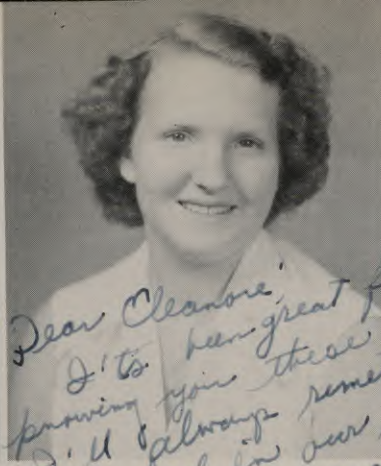 Dear Eleanore,
I'ts been great f
knowing you these
I'll always reme
in our